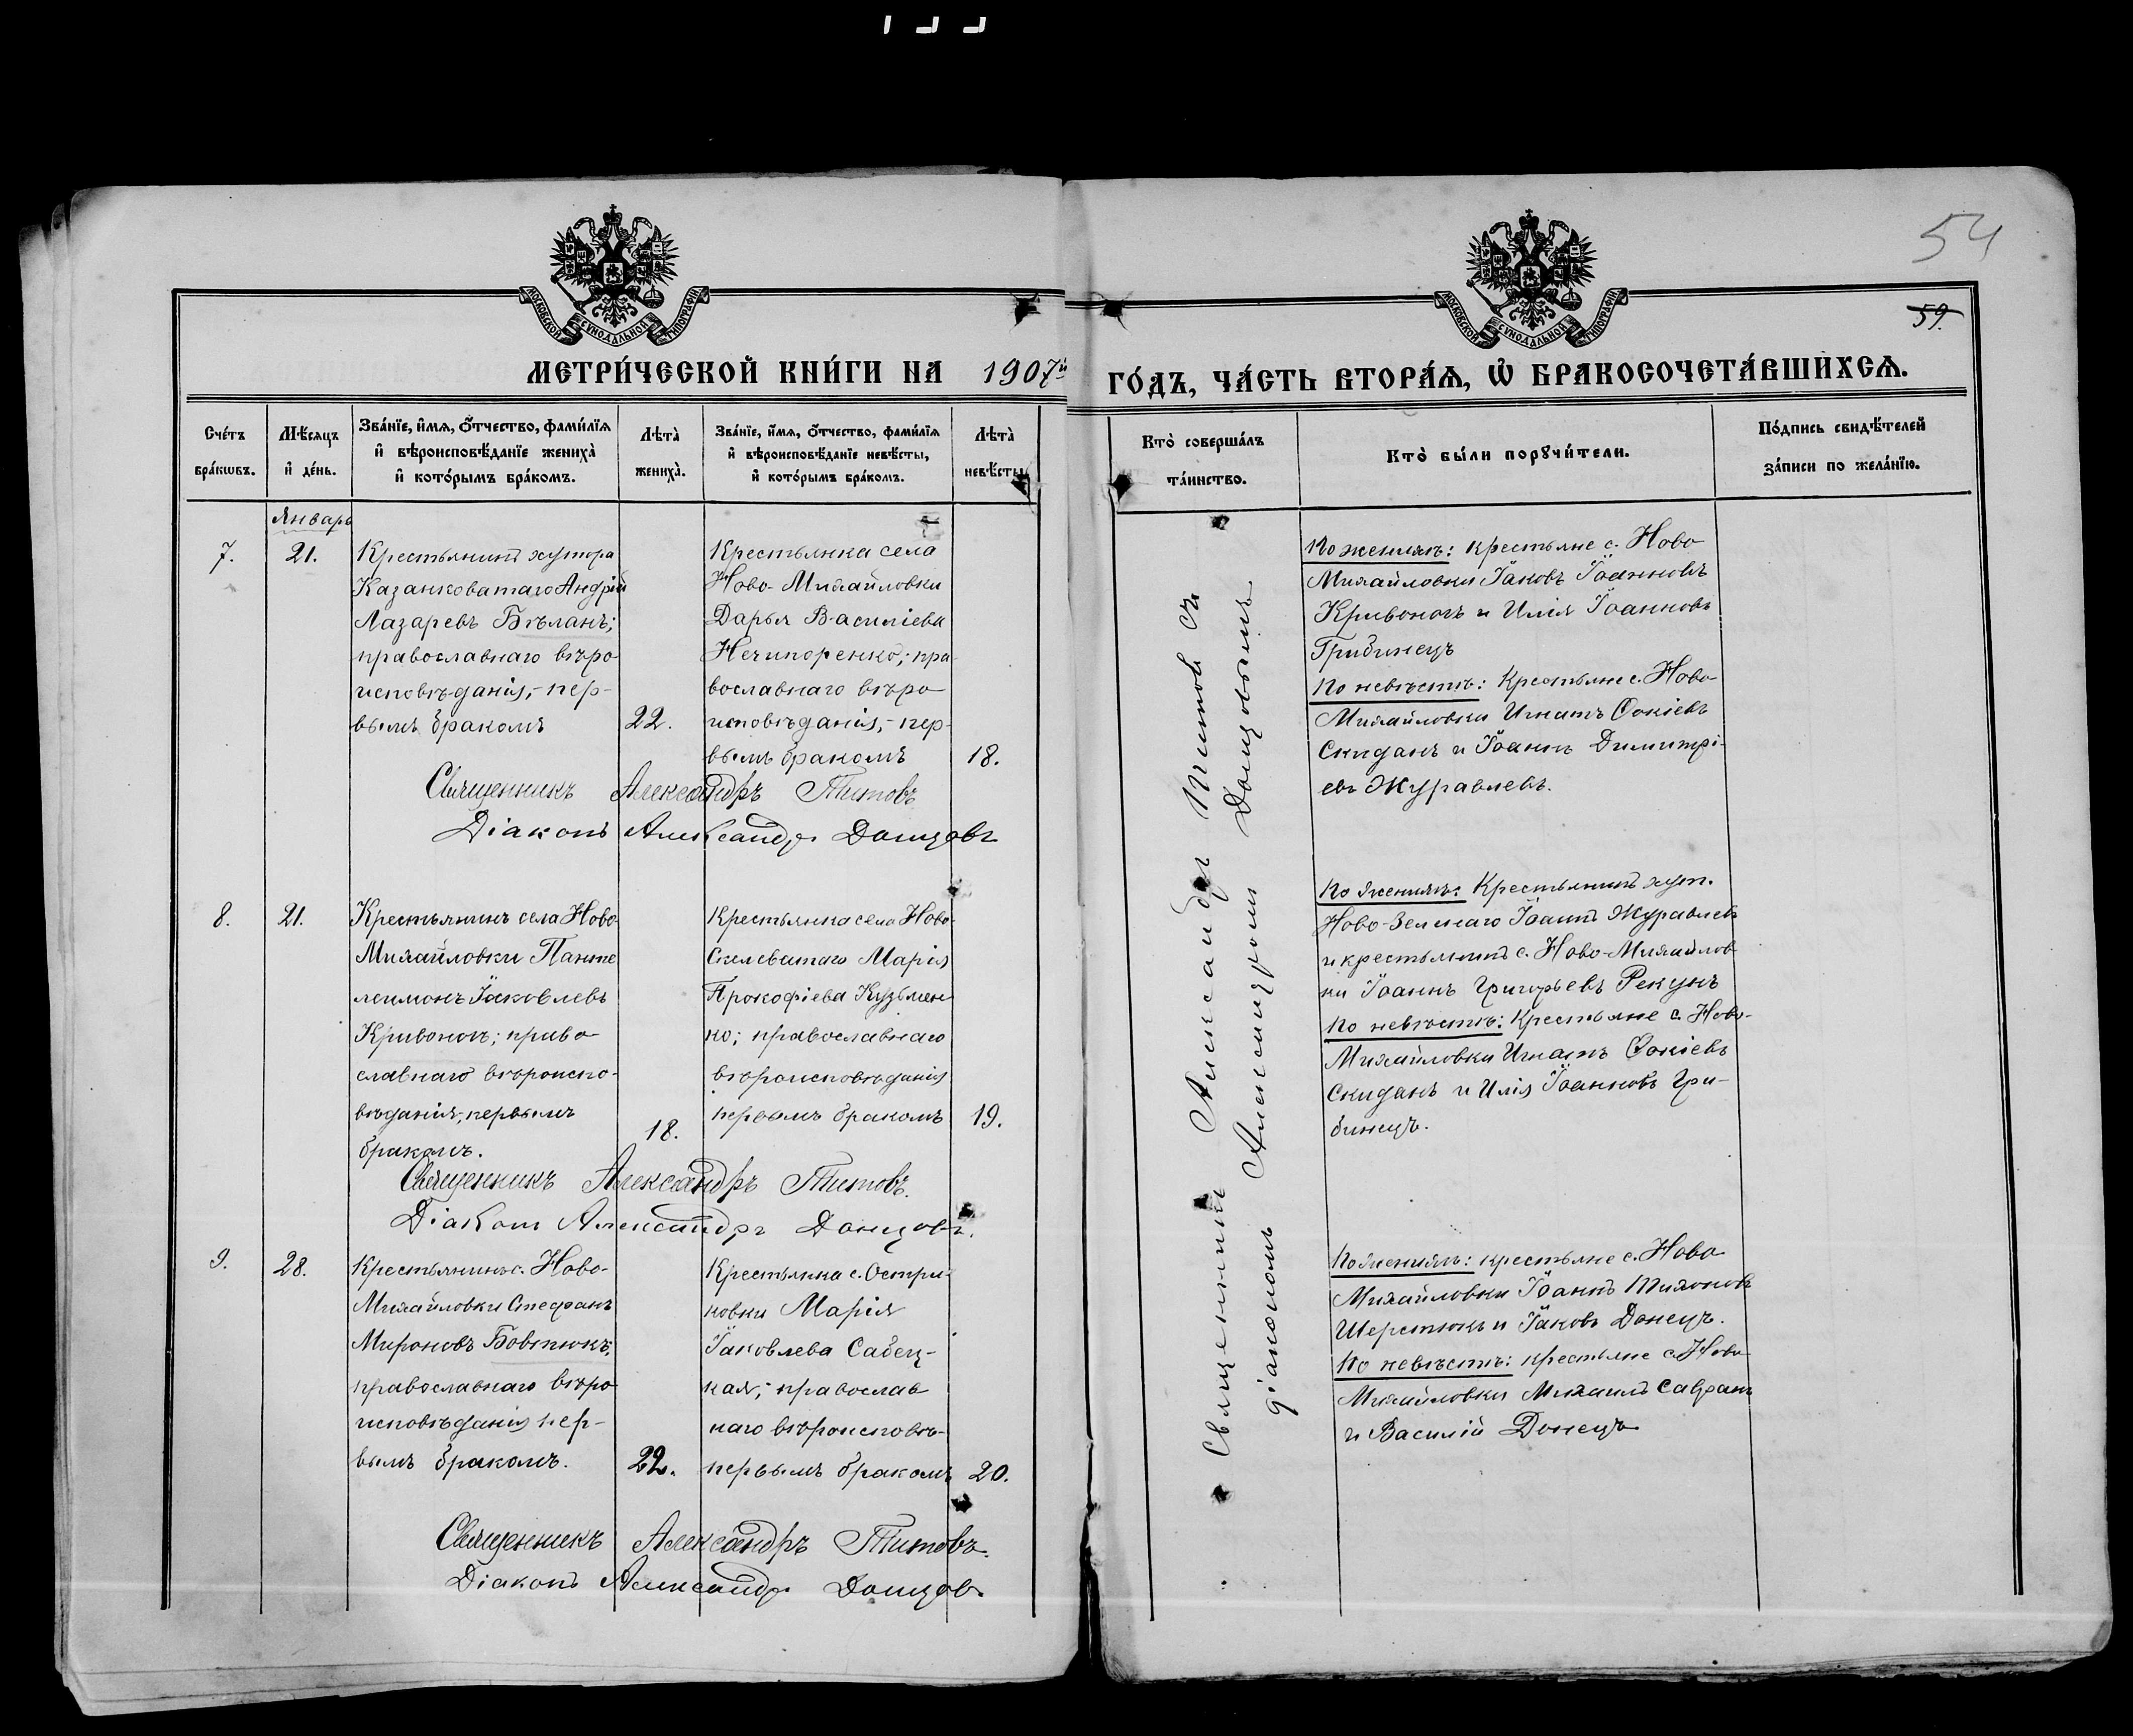 54
59.
МОСКОВСКОЙ СУНОДАЛЬНОЙ ТИПОГРАФІИ
МОСКОВСКОЙ СУНОДАЛЬНОЙ ТИПОГРАФІИ
МЕТРИ́ЧЕСКОЙ КНИ́ГИ НА 1907й ГО́ДЪ, ЧА́СТЬ ВТОРА́Ѧ, Ѽ БРАКОСОЧЕТА́ВШИХСѦ.
Сче́тъ бра́кωвъ.
Мѣ́сяцъ и де́нь.
Зва́нїе, и́мя, о́тчество, фами́лїя и вѣроисповѣ́данїе жениха̀ и кото́рымъ бра́комъ.
Лѣта̀ жениха̀.
Зва́нїе, и́мя, о́тчество, фами́лїя и вѣроисповѣ́данїе невѣ́сты, и кото́рымъ бра́комъ.
Лѣта̀ невѣ́сты
Кто̀ соверша́лъ та́инство.
Кто̀ бы́ли порꙋчи́тели.
По́дпись свидѣ́телей за́писи по жела́нїю.
Январь
7.
21.
Крестьянинъ хутора
Казанковатаго Андрій
Лазаревъ Бѣланъ;
православнаго вѣро
исповѣданія,- пер-
вымъ бракомъ
22.
Крестьянка села
Ново-Михайловки
Дарья Василіева
Нечипоренко; пра
вославнаго вѣро
исповѣданія,- пер-
вымъ бракомъ
18.
Священникъ Александръ Титовъ
Діаконъ Александръ Донцовъ
По женихѣ: крестьяне с. Ново
Михайловки Іаковъ Іоанновъ
Кривоносъ и Илія Іоанновъ
Грибинецъ
По невѣстѣ: Крестьяне с. Ново-
Михайловки Игнатъ Фокіевъ
Скиданъ и Іоаннъ Димитрі-
евъ Журавлевъ.
8.
21.
Крестьянинъ села Ново
Михайловки Панте
леимонъ Іаковлевъ
Кривоносъ; право
славнаго вѣроиспо-
вѣданія, первымъ
бракомъ.
18.
Крестьянка села Ново-
Скелеватаго Марія
Прокофіева Кузьмен
ко; православнаго
вѣроисповѣданія
первымъ бракомъ
19.
Священникъ Александръ Титовъ.
Діаконъ Александръ Донцовъ.
По женихѣ: Крестьянинъ хут.
Ново-Земнаго Іоаннъ Журавлевъ
и крестьянинъ с. Ново-Михайлов
ки Іоаннъ Григорьевъ Рекунъ
По невѣстѣ: Крестьяне с. Ново-
Михайловки Игнатъ Фокіевъ
Скиданъ и Илія Іоанновъ Гри-
бинецъ.
9.
28.
Крестьянинъ с. Ново-
Михайловки Стефанъ
Мироновъ Бовтюкъ;
православнаго вѣро
исповѣданія пер-
вымъ бракомъ.
22.
Крестьянка с. Остри-
ковки Марія
Іаковлева Сабец-
кая; православ
наго вѣроисповѣ-
первымъ бракомъ
20.
Священникъ Александръ Титовъ.
Діаконъ Александръ Донцовъ.
По женихѣ: крестьяне с. Ново
Михайловки Іоаннъ Тихоновъ
Шерстюкъ и Іаковъ Донецъ.
По невѣстѣ: крестьяне с. Ново
Михайловки Михаилъ Савранъ
и Василій Донецъ
Священникъ Александръ Титовъ съ
діакономъ Александромъ Донцовымъ